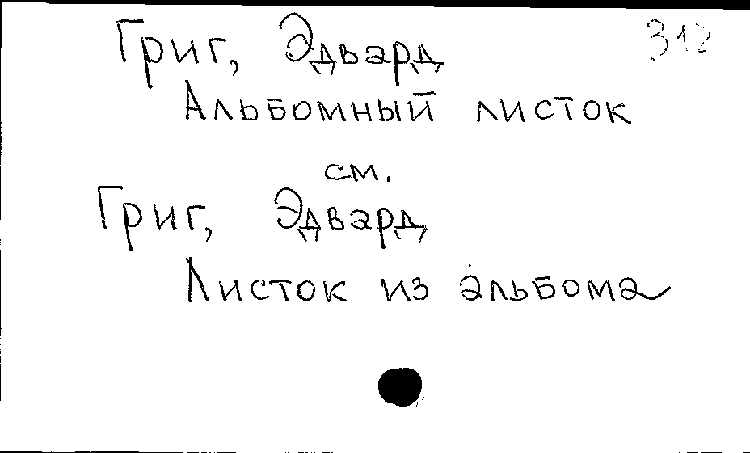 Григ, Эдвард 312
Альбомный листок
см.
Григ, Эдвард
Листок из альбома